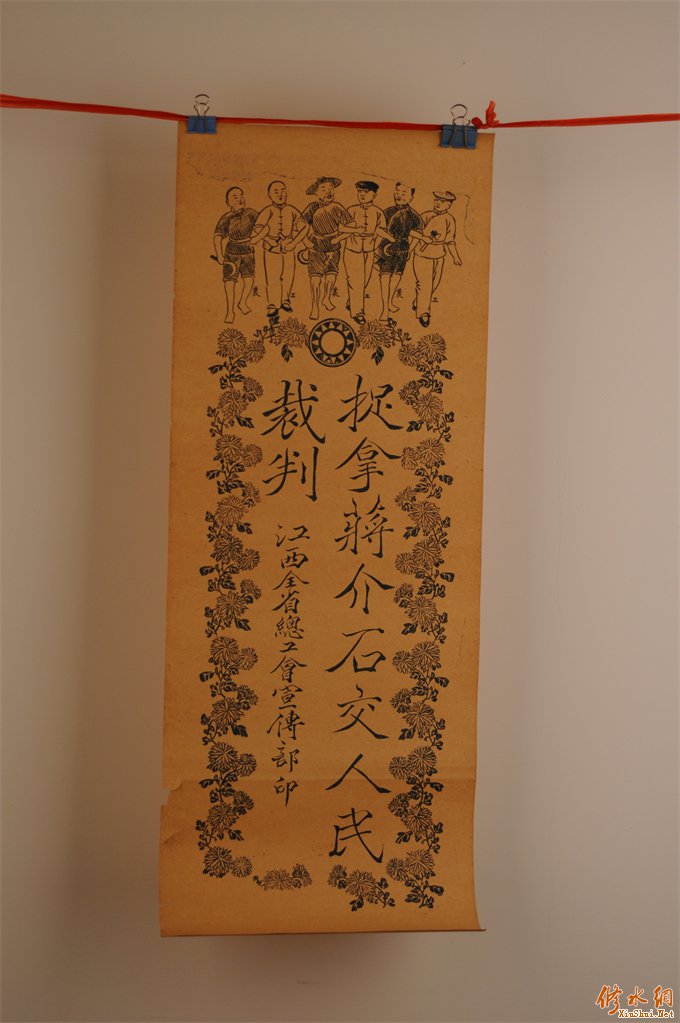 農 工 農 工 農 工
捉拿蔣介石交人民
裁判
江西全省總工會宣傳部印
修水網
XiuShui.Net